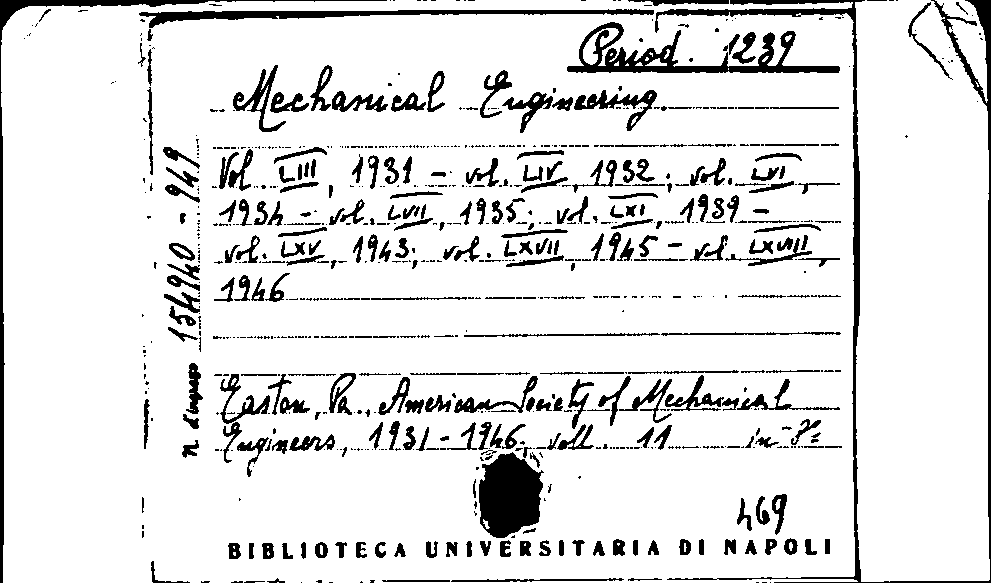 Period. 1239
Mechanical Engineering.
Vol. LIII, 1931 - vol. LIV, 1932; vol. LVI,
1934 - vol. LVII, 1935; vol. LXI, 1939 -
vol. LXV, 1943; vol. LXVII, 1945 - vol. LXVIII,
1946
Easton, Pa., American Society of Mechanical
Engineers, 1931-1946. voll. 11 in-8º
n. d'ingresso 154940-949
469
BIBLIOTECA UNIVERSITARIA DI NAPOLI